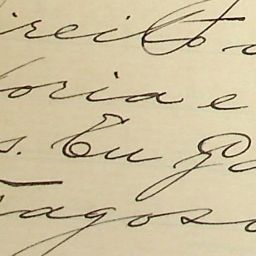 ireito
oria e
s. Eu
ragoso